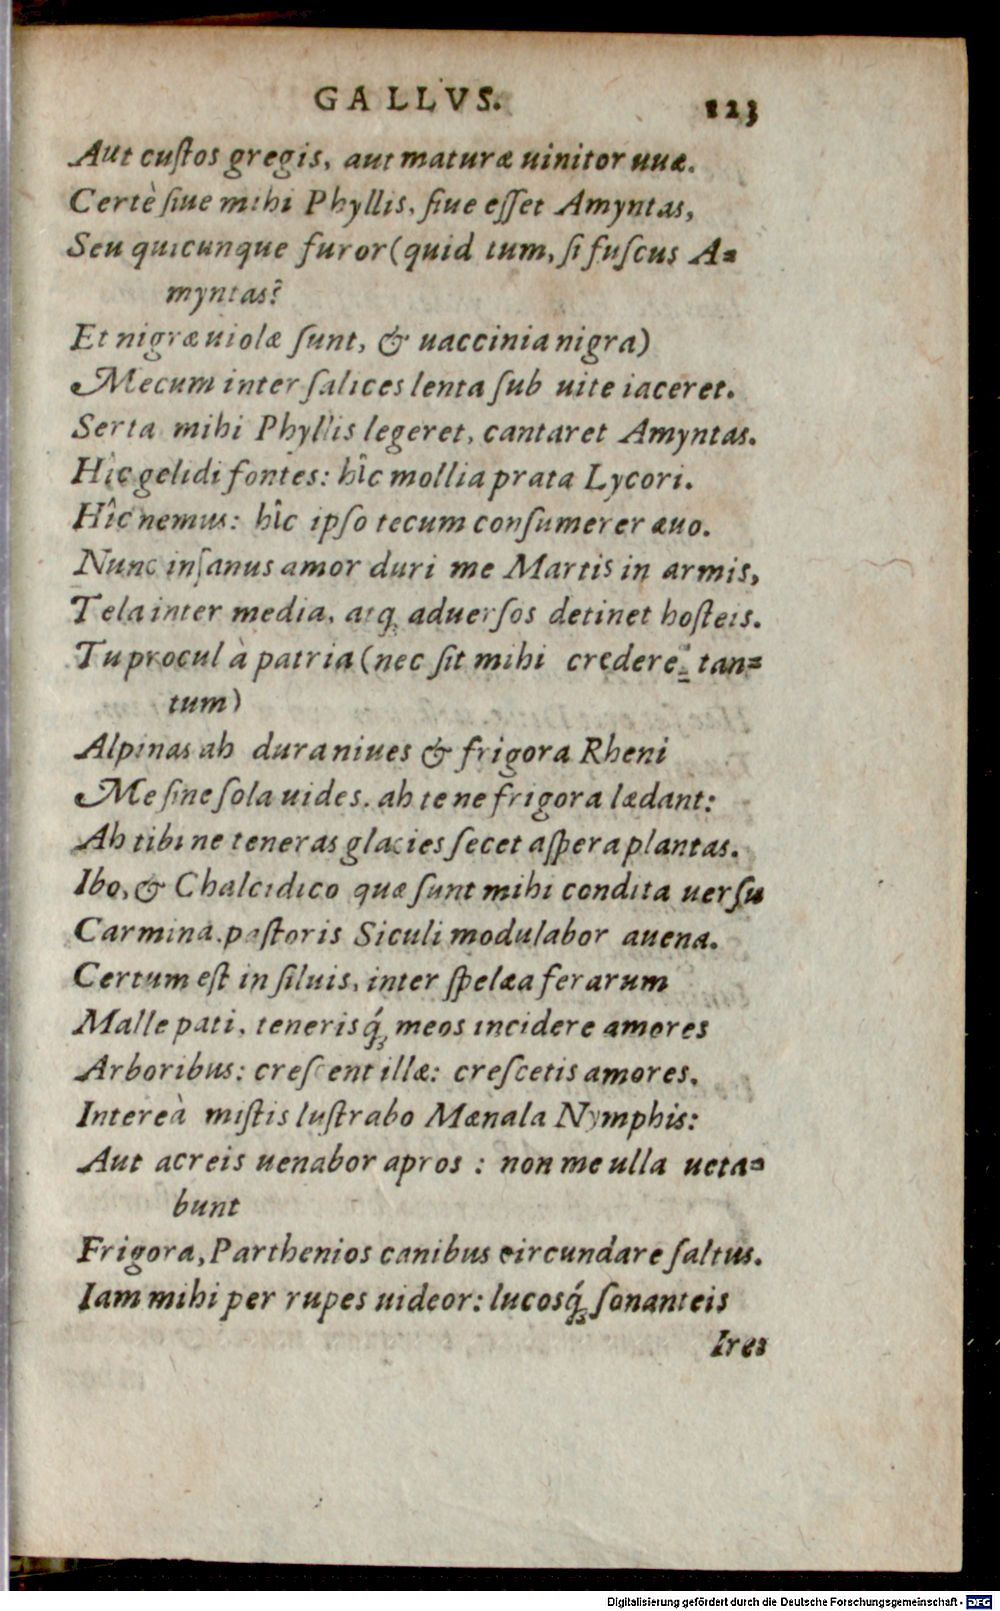 GALLVS. 123
Aut cuſtos gregis, aut maturæ uinitor uuæ.
Certè ſiue mihi Phyllis, ſiue eſſet Amyntas,
Seu quicunque furor (quid tum, ſi fuſcus A=
myntas?
Et nigræ uiolæ ſunt, & uaccinia nigra)
Mecum inter ſalices lenta ſub uite iaceret.
Serta mihi Phyllis legeret, cantaret Amyntas.
Hîc gelidi fontes: hîc mollia prata Lycori.
Hîc nemus: hîc ipſo tecum conſumerer æuo.
Nunc inſanus amor duri me Martis in armis,
Tela inter media, atq; aduerſos detinet hoſteis.
Tu procul à patria (nec ſit mihi credere tan=
tum)
Alpinas ah dura niues & frigora Rheni
Me ſine ſola uides. ah te ne frigora lædant:
Ah tibi ne teneras glacies ſecet aſpera plantas.
Ibo, & Chalcidico quæ ſunt mihi condita uerſu
Carmina, paſtoris Siculi modulabor auena.
Certum eſt in ſiluis, inter ſpelæa ferarum
Malle pati, teneriſq́; meos incidere amores
Arboribus: creſcent illæ: creſcetis amores.
Intereà miſtis luſtrabo Mænala Nymphis:
Aut acreis uenabor apros : non me ulla ueta=
bunt
Frigora, Parthenios canibus circundare ſaltus.
Iam mihi per rupes uideor: lucoſq́; ſonanteis
Ire:
Digitalisierung gefördert durch die Deutsche Forschungsgemeinschaft - DFG